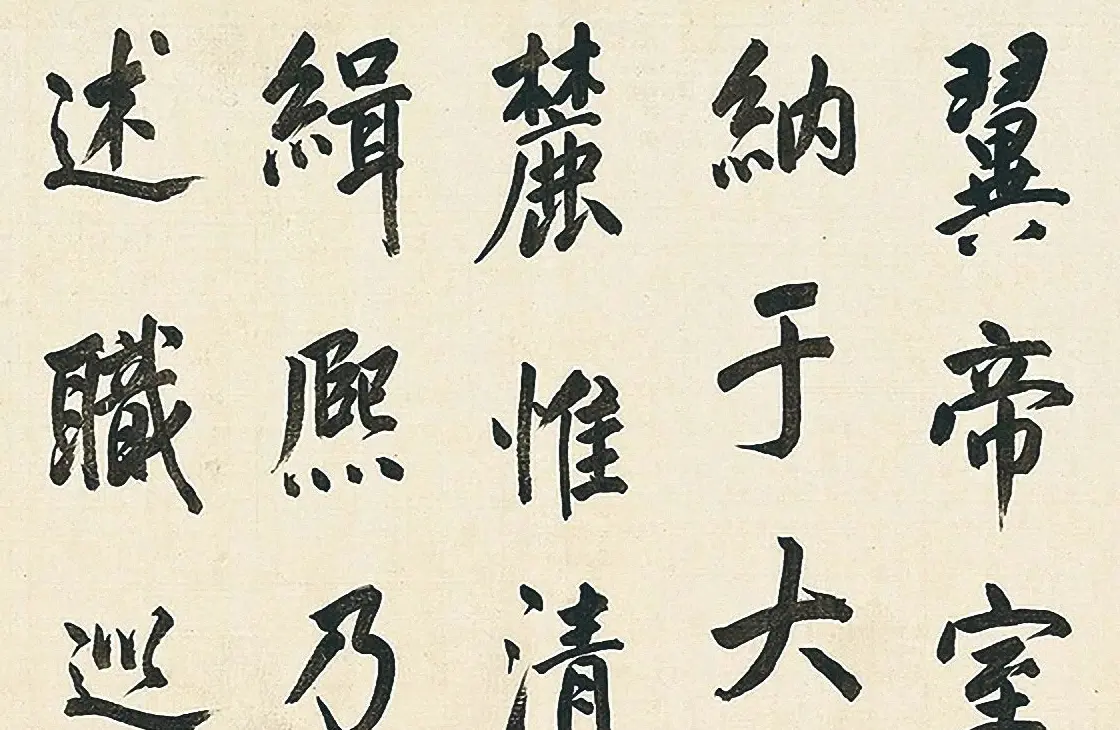 翼帝室
納于大
麓惟清
緝熙乃
述職巡